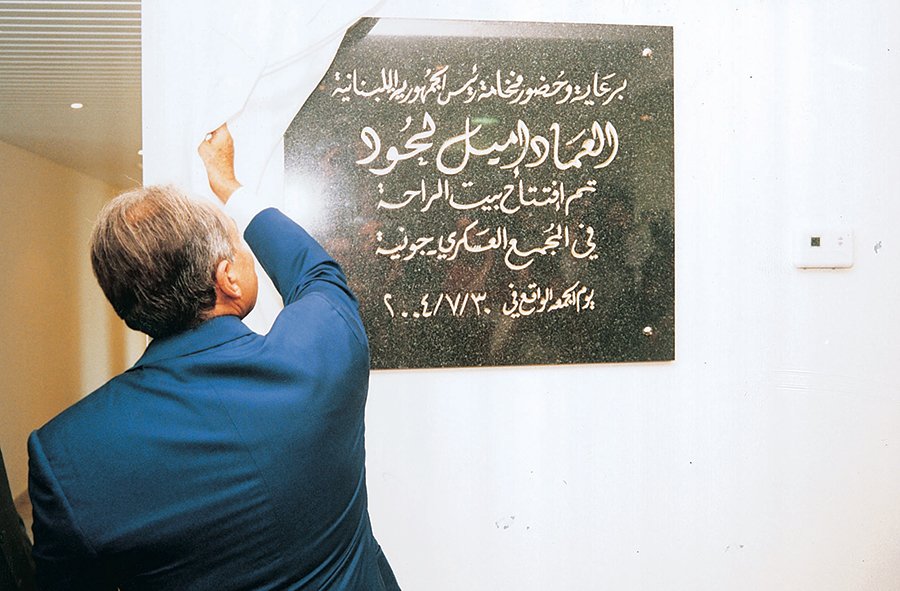 برعاية وحضور فخامة رئيس الجمهورية اللبنانية
العماد اميل لحود
تم افتتاح بيت الراحة
في المجمع العسكري - جونية
يوم الجمعة الواقع في ٢٠٠٤/٧/٣٠